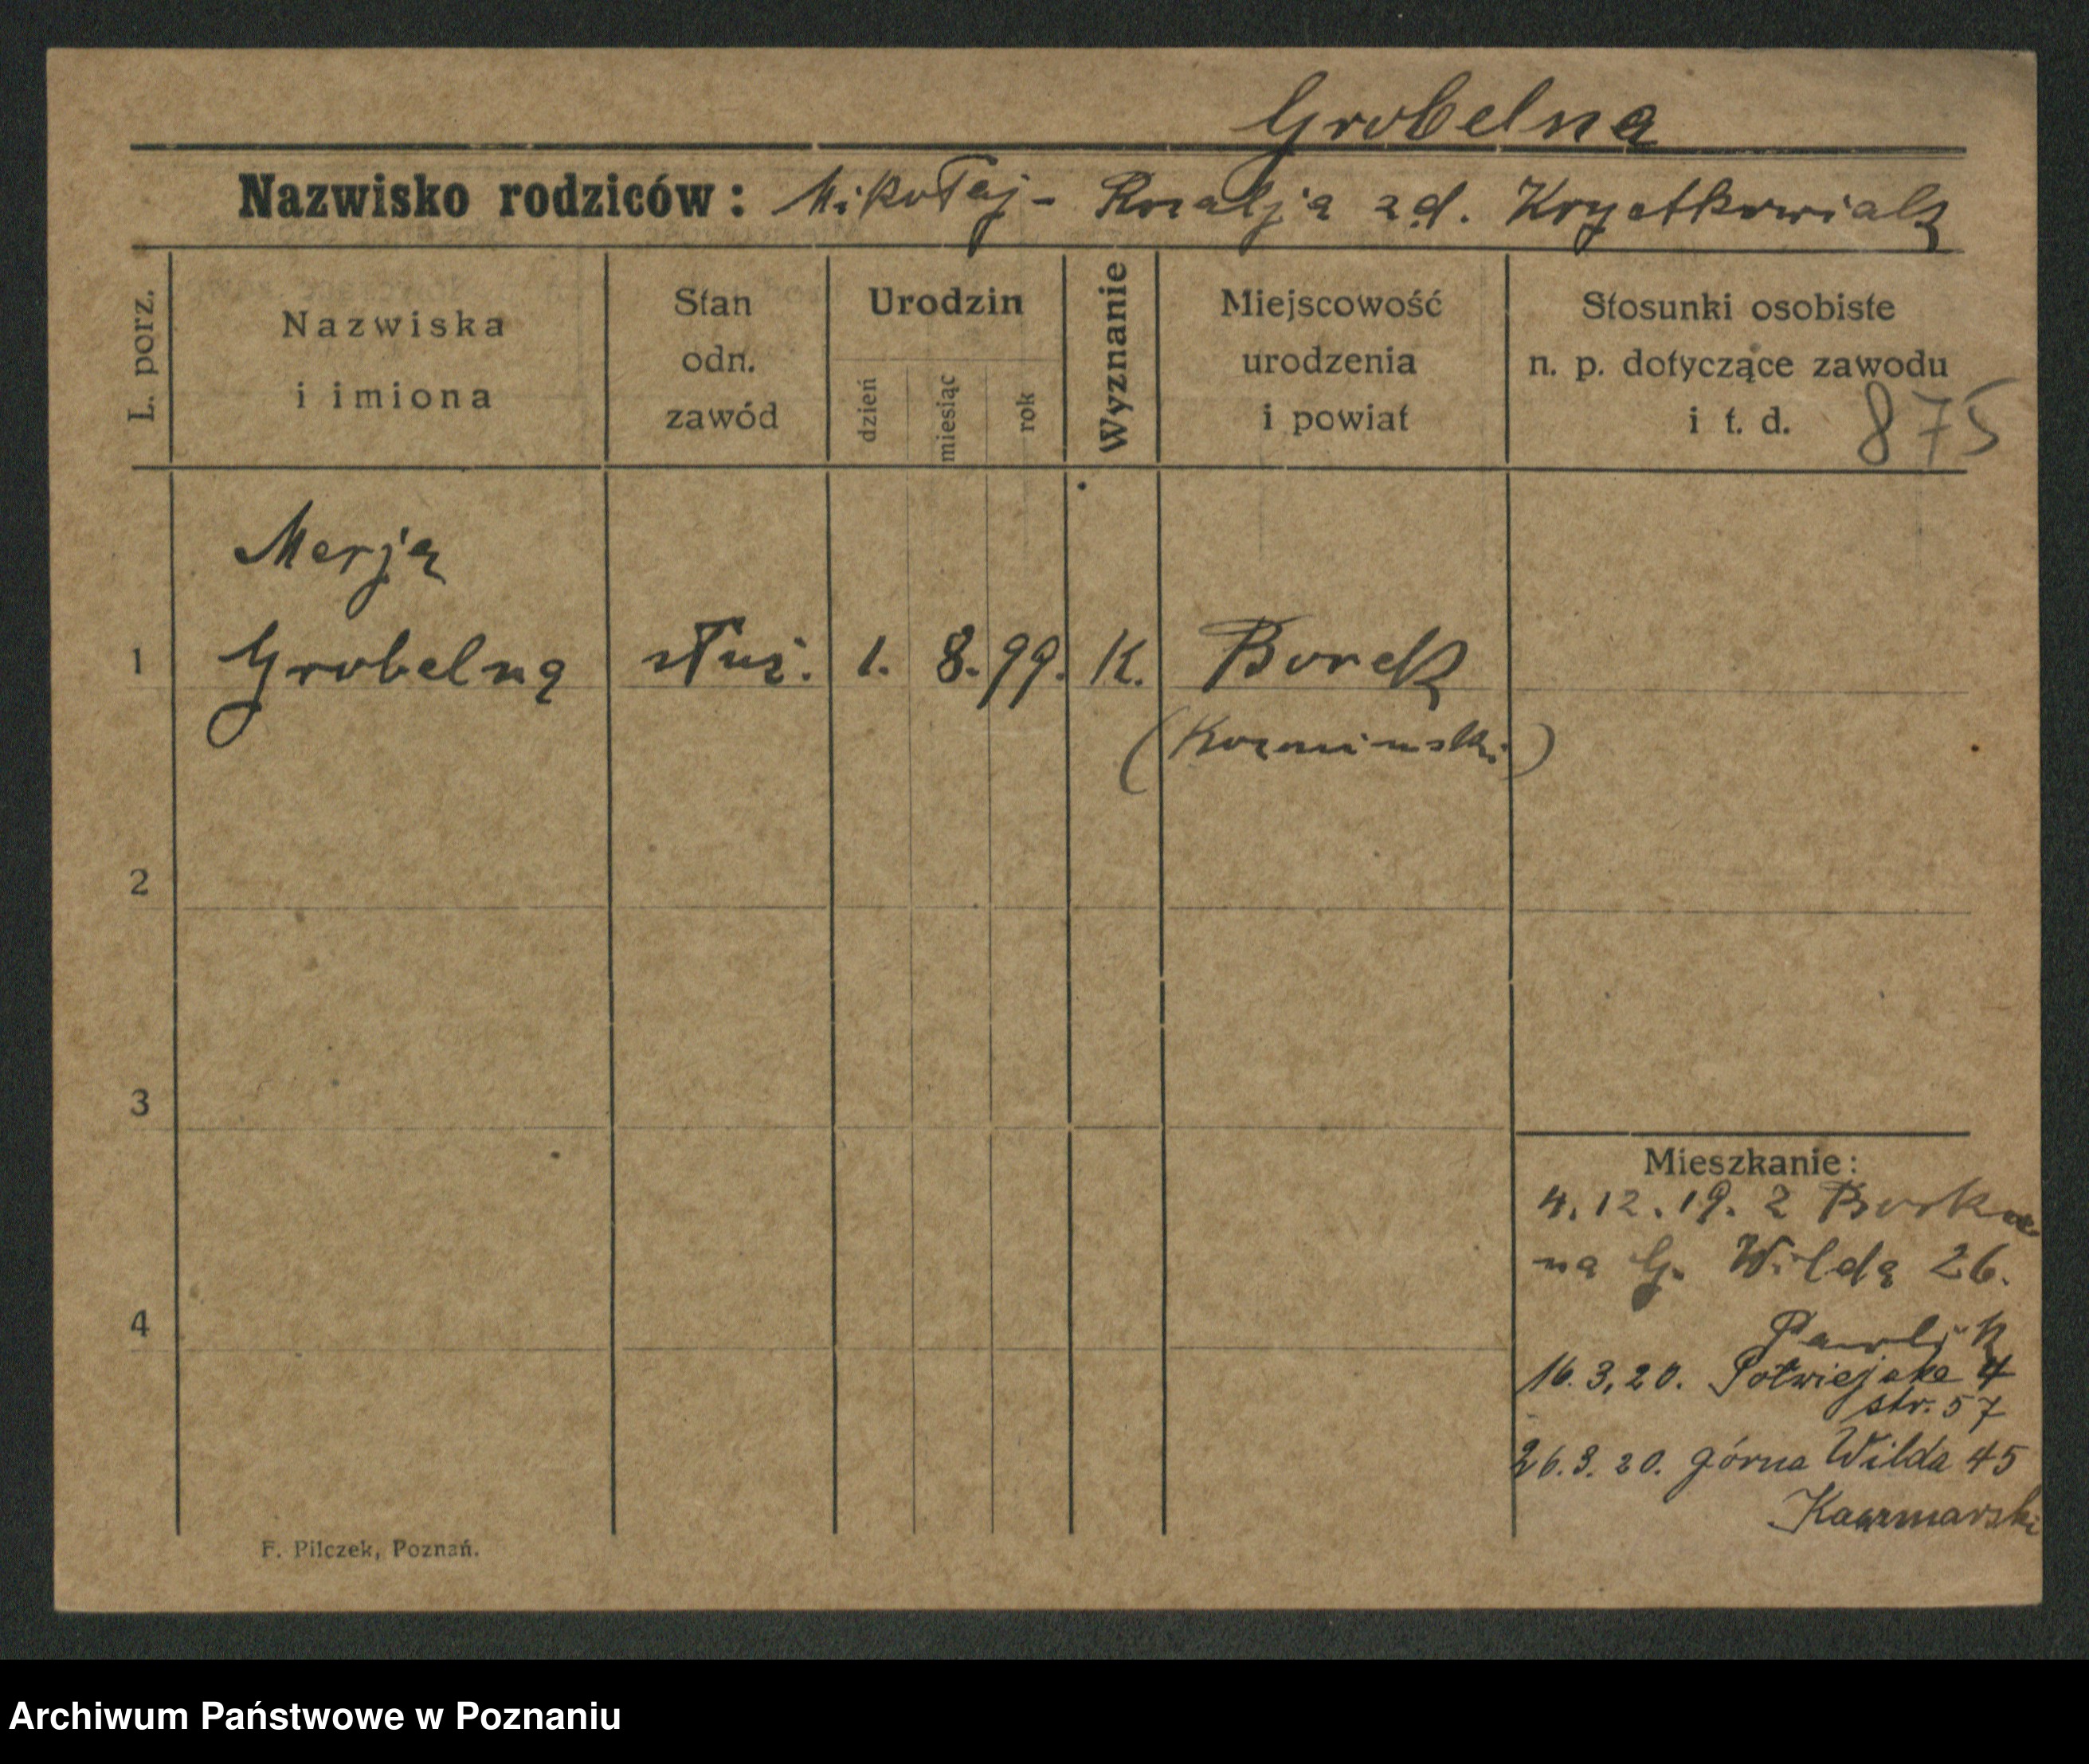 Grobelna
Nazwisko rodziców: Mikołaj - Rozalja zd. Krystkowiak
L. porz.
Nazwiska
i imiona
Stan
odn.
zawód
Urodzin
dzień
miesiąc
rok
Wyznanie
Miejscowość
urodzenia
i powiat
Stosunki osobiste
n. p. dotyczące zawodu
i t. d.
875
Marja
1 Grobelna służ. 1. 8. 99. K. Borek
(Kozminski)
2
3
4
Mieszkanie:
4.12.19. z Borku
na G. Wilda 26.
Pawlik
16.3.20. Półwiejska 4
str. 57
26.3.20. górna Wilda 45
Kaczmarski
F. Pilczek, Poznań.
Archiwum Państwowe w Poznaniu